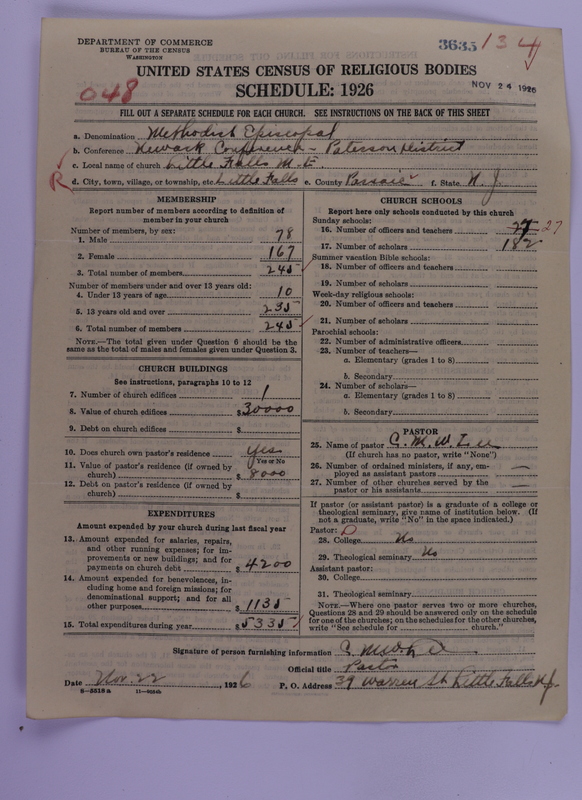 DEPARTMENT OF COMMERCE
BUREAU OF THE CENSUS
WASHINGTON
3635 134
UNITED STATES CENSUS OF RELIGIOUS BODIES
SCHEDULE: 1926
NOV 24 1926
048
FILL OUT A SEPARATE SCHEDULE FOR EACH CHURCH. SEE INSTRUCTIONS ON THE BACK OF THIS SHEET
a. Denomination Methodist Episcopal
b. Conference Newark Conference - Paterson District
c. Local name of church Little Falls M.E.
R d. City, town, village, or township, etc Little Falls e. County Passaic f. State N.J.
MEMBERSHIP
Report number of members according to definition of
member in your church
Number of members, by sex:
1. Male 78
2. Female 167
3. Total number of members 245
Number of members under and over 13 years old:
4. Under 13 years of age 10
5. 13 years old and over 235
6. Total number of members 245
NOTE.—The total given under Question 6 should be
the same as the total of males and females given under Question 3.
CHURCH BUILDINGS
See instructions, paragraphs 10 to 12
7. Number of church edifices 1
8. Value of church edifices $30000
9. Debt on church edifices $
10. Does church own pastor's residence yes
Yes or No
11. Value of pastor's residence (if owned by
church) $ 8000
12. Debt on pastor's residence (if owned by
church) $
EXPENDITURES
Amount expended by your church during last fiscal year
13. Amount expended for salaries, repairs,
and other running expenses; for im-
provements or new buildings; and for
payments on church debt $ 4200
14. Amount expended for benevolences, in-
cluding home and foreign missions; for
denominational support; and for all
other purposes $ 1135
15. Total expenditures during year $5335
CHURCH SCHOOLS
Report here only schools conducted by this church
Sunday schools:
16. Number of officers and teachers 27
17. Number of scholars 182
Summer vacation Bible schools:
18. Number of officers and teachers
19. Number of scholars
Week-day religious schools:
20. Number of officers and teachers
21. Number of scholars
Parochial schools:
22. Number of administrative officers
23. Number of teachers—
a. Elementary (grades 1 to 8)
b. Secondary
24. Number of scholars—
a. Elementary (grades 1 to 8)
b. Secondary
PASTOR
25. Name of pastor C. M. W.
(If church has no pastor, write "None")
26. Number of ordained ministers, if any, em-
ployed as assistant pastors —
27. Number of other churches served by the
pastor or his assistants —
If pastor (or assistant pastor) is a graduate of a college or
theological seminary, give name of institution below. (If
not a graduate, write "No" in the space indicated.)
Pastor:
28. College No
29. Theological seminary No
Assistant pastor:
30. College
31. Theological seminary
NOTE.—Where one pastor serves two or more churches,
Questions 28 and 29 should be answered only on the schedule
for one of the churches; on the schedules for the other churches,
write "See schedule for church."
Signature of person furnishing information
Official title Pastor
Date Nov. 22, 1926 P. O. Address 39 Warren St. Little Falls N.J.